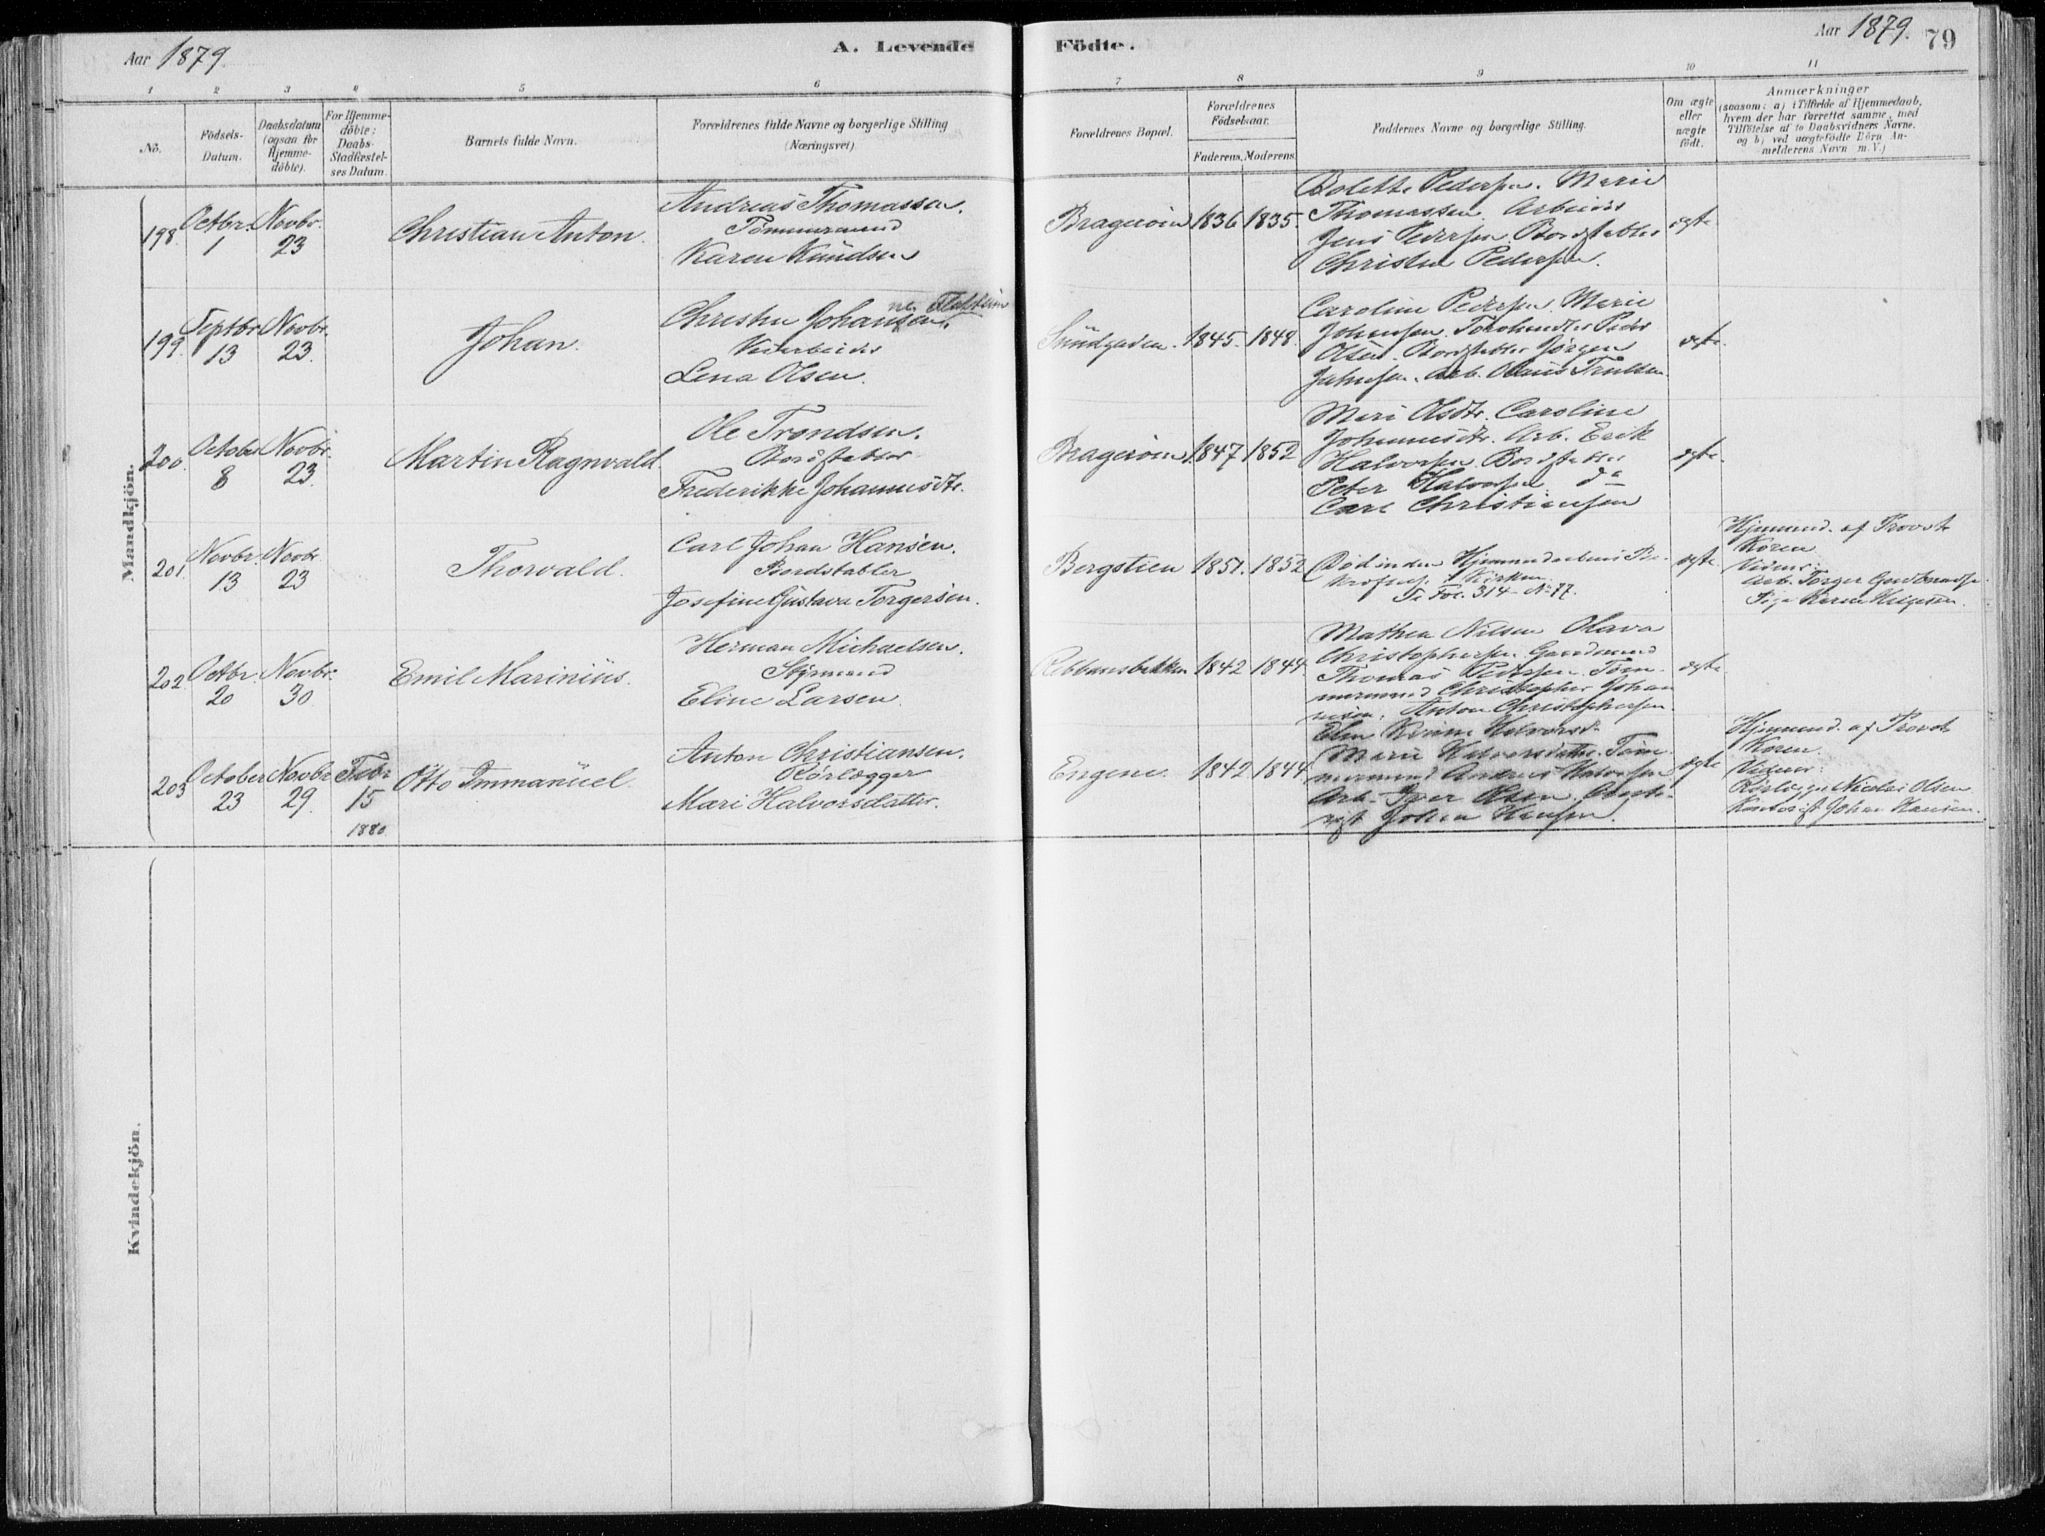 Aar 1879.
A. Levende
Födte.
Aar 1879.
79
1 2 3 4 5 6 7 8 9 10 11
No.
Födsels-
Datum.
Daabsdatum
(ogsaa for
Hjemme-
döbte).
For Hjemme-
döbte:
Daabs-
Stadfæstel-
ses Datum.
Barnets fulde Navn.
Forældrenes fulde Navne og borgerlige Stilling
(Næringsvei)
Forældrenes Bopæl.
Forældrenes
Födselsaar.
Faderens. Moderens.
Faddernes Navne og borgerlige Stilling.
Om ægte
eller
uægte
födt.
Anmærkninger
(saasom: a) i Tilfælde af Hjemmedaab,
hvem der har forrettet samme, med
Tilföielse af to Daabsvidners Navne.
og b) ved uægtefödte Börn An-
melderens Navn m. V.)
Mandkjön.
198.
Octbr.
1
Novbr.
23
Christian Anton.
Andreas Thomassen.
Tømmermand
Karen Knudsen
Bragerøen
1836
1835.
Bolette Pedersen. Marie
Thomassen. Arbeider
Jens Pedersen. Bordstabler
Christen Pedersen.
ægte
199.
Septbr.
13
Novbr.
23.
Johan.
Christen Johansen.
Lena Olsen.
1845.
1848.
Caroline Pedersen. Marie
Johansen. Peder
Olsen. Bordstabler Jørgen
Arb. Truelsen
ægte.
200.
October
8
Novbr.
23.
Martin Ragnvald.
Ole Trondsen.
Bordstabler
Frederikke Johannesdtr.
Bragerøen
1847
1852
Mari Olsdtr. Caroline
Johannesdtr. Arb. Erik
Halvorsen. Bordstabler
Peter Halvorsen do
Carl Christiansen
ægte.
201.
Novbr.
13
Novbr.
23
Thorvald.
Carl Johan Hansen.
Bordstabler
Josefine Gustava Torgersen.
Bergstien
1851.
1852
Død inden Hjemmedaabens
Kirken.
Fol. 314 No 77.
ægte.
Hjemmed. af Provst
Koren
Vidner:
Arb. Torger
Pige Karen
202.
Octbr.
20
Novbr.
30
Emil Marinius.
Herman Michaelsen.
Styrmand
Eline Larsen.
1842
1844.
Mathea Nilsen Olava
Christophersen. Gaardmand
Thomas Tøm-
mermand Christopher Johan
nesen. Anton Christophersen.
ægte
203
October
23
Novbr
29.
Febr
15
1880
Otto Immanuel
Anton Christiansen.
Rørlægger
Mari Halvorsdatter.
Engene.
1842
1844.
Marie Halvorsdatter. Tøm-
mermand Andreas Halvorsen
Arb. Iver Olsen.
Johan Hansen.
ægte
Hjemmed. af Provst
Koren.
Vidner:
Rørlægger Nicolai Olsen
Kontorist Johan Hansen.
Kvindekjön.